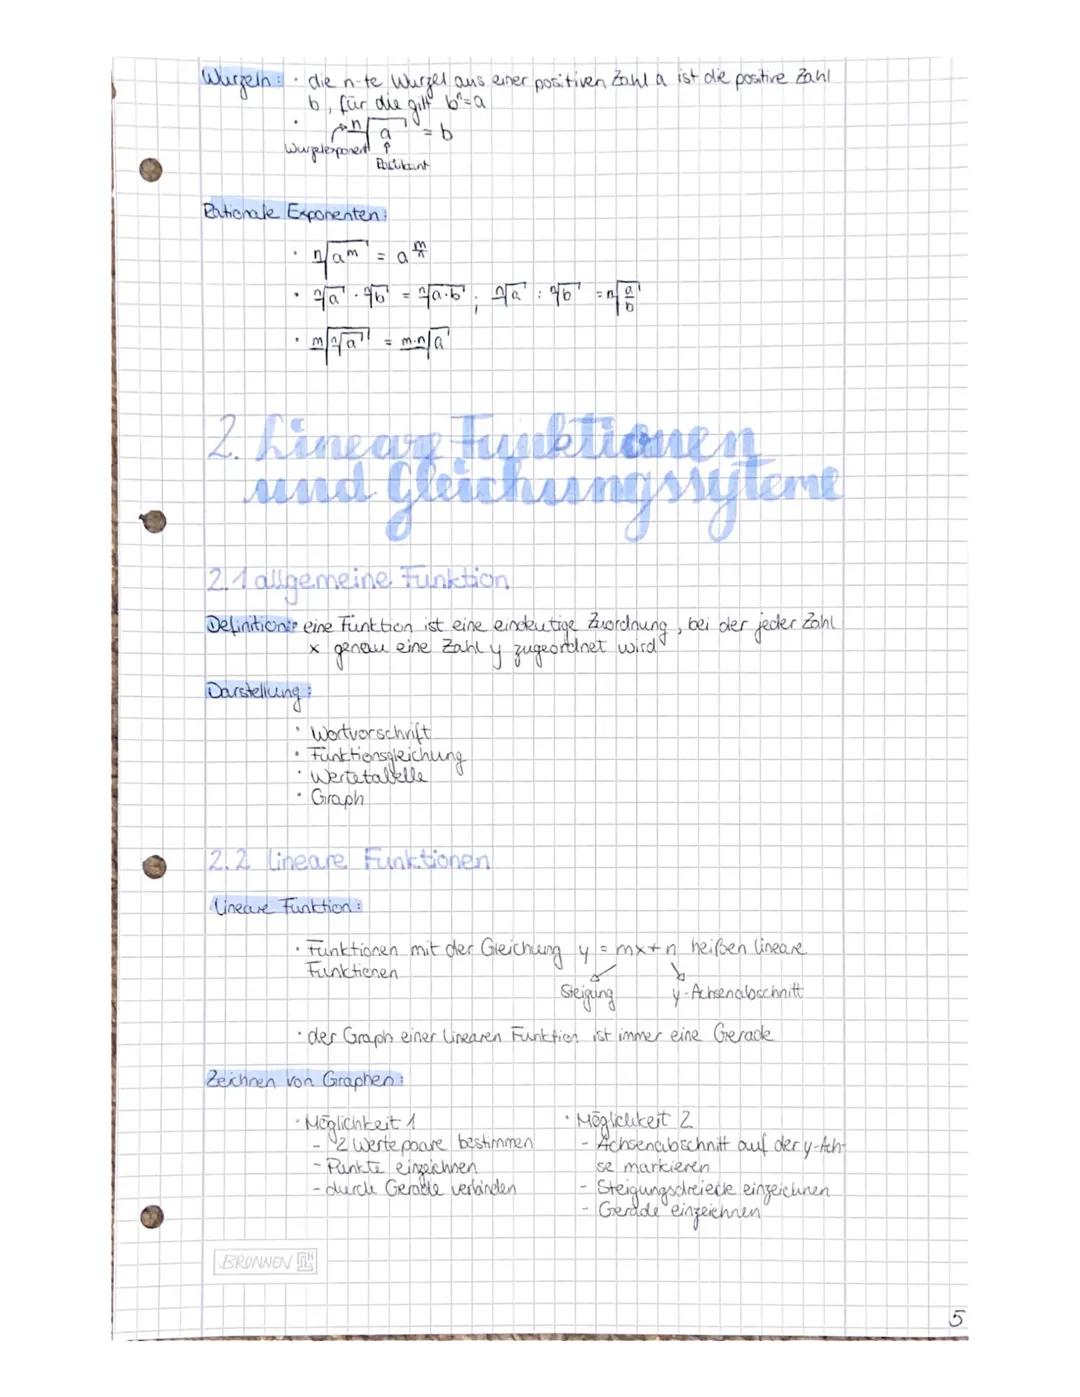 Wurzeln: · die n-te Wurzel aus einer positiven Zahl a ist die positive Zahl
b, für die gilt bⁿ=a
· ⁿ√a = b
Wurzelexponent
Radikant
Rationale Exponenten:
· ⁿ√aᵐ = a^(m/n)
· ⁿ√a · ⁿ√b = ⁿ√a·b ; ⁿ√a : ⁿ√b = ⁿ√(a/b)
· ᵐ√ⁿ√a = ᵐ·ⁿ√a
2. Lineare Funktionen
und Gleichungssyteme
2.1 allgemeine Funktion
Definition: eine Funktion ist eine eindeutige Zuordnung, bei der jeder Zahl
x genau eine Zahl y zugeordnet wird
Darstellung:
· Wortvorschrift
· Funktionsgleichung
· Wertetabelle
· Graph
2.2 lineare Funktionen
Lineare Funktion:
· Funktionen mit der Gleichung y = mx+n heißen lineare
Funktionen
Steigung y-Achsenabschnitt
· der Graph einer linearen Funktion ist immer eine Gerade
Zeichnen von Graphen:
· Möglichkeit 1
- 2 Wertepaare bestimmen
- Punkte einzeichnen
- durch Gerade verbinden
· Möglichkeit 2
- Achsenabschnitt auf der y-Ach-
se markieren
- Steigungsdreiecke einzeichnen
- Gerade einzeichnen
BRUNNEN
5